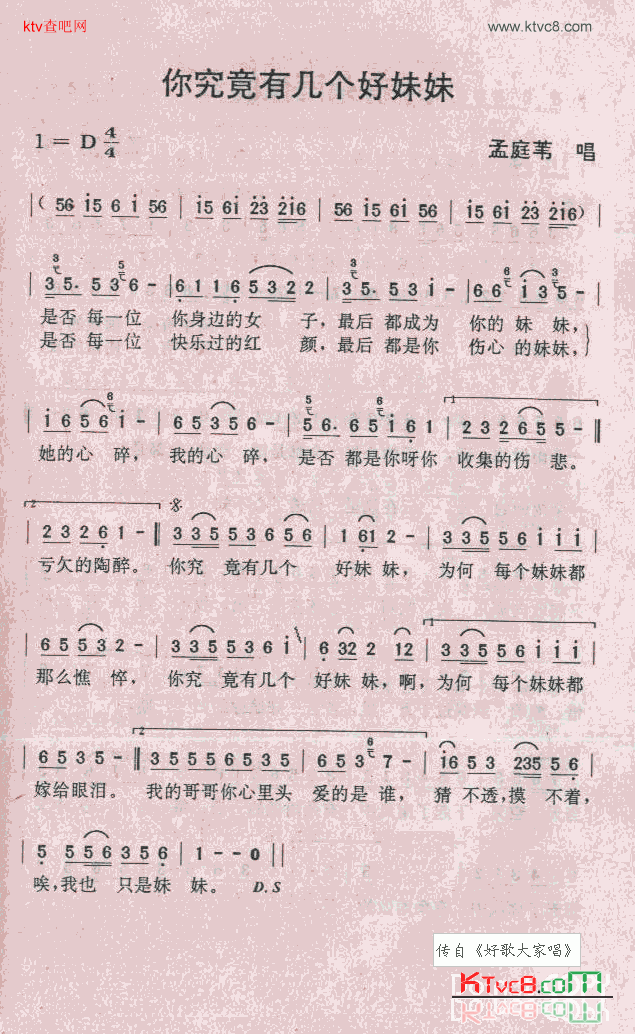 ktv查吧网
www.ktvc8.com
你究竟有几个好妹妹
1 = D 4/4
孟庭苇 唱
|( 56 i5 6 i 56 | i5 6i 23 2i6 | 56 i5 6i 56 | i5 6i 23 2i6 ) |
| 3 5· 5 3 6 - | 6 1 1 6 5 3 2 2 | 3 5· 5 3 i - | 6 6 i 3 5 - |
是否 每一位 你身边的女 子，最后 都成为 你的 妹 妹，
是否 每一位 快乐过的红 颜，最后 都是你 伤心 的妹妹，
| i 6 5 6 i - | 6 5 3 5 6 - | 5 6· 6 5 i 6 1 | 2 3 2 6 5 5 - ‖
她的心 碎，我的心 碎，是否 都是你呀你 收集的伤 悲。
| 2 3 2 6 1 - ‖ 3 3 5 5 3 6 5 6 | 1 6 1 2 - | 3 3 5 5 6 i i i |
亏欠的陶醉。 你究 竟有几个 好妹妹， 为何 每个妹妹都
| 6 5 5 3 2 - | 3 3 5 5 3 6 i | 6 32 2 12 | 3 3 5 5 6 i i i |
那么憔 悴， 你究 竟有几个 好妹 妹，啊，为何 每个妹妹都
| 6 5 3 5 - ‖ 3 5 5 5 6 5 3 5 | 6 5 3 7 - | i6 5 3 235 5 6 |
嫁给眼泪。 我的哥哥你心里头 爱的是 谁， 猜 不透，摸 不着，
| 5 5 5 6 3 5 6 | 1 - - 0 ‖
唉，我也 只是妹 妹。 D.S
传自《好歌大家唱》
KTvc8.com